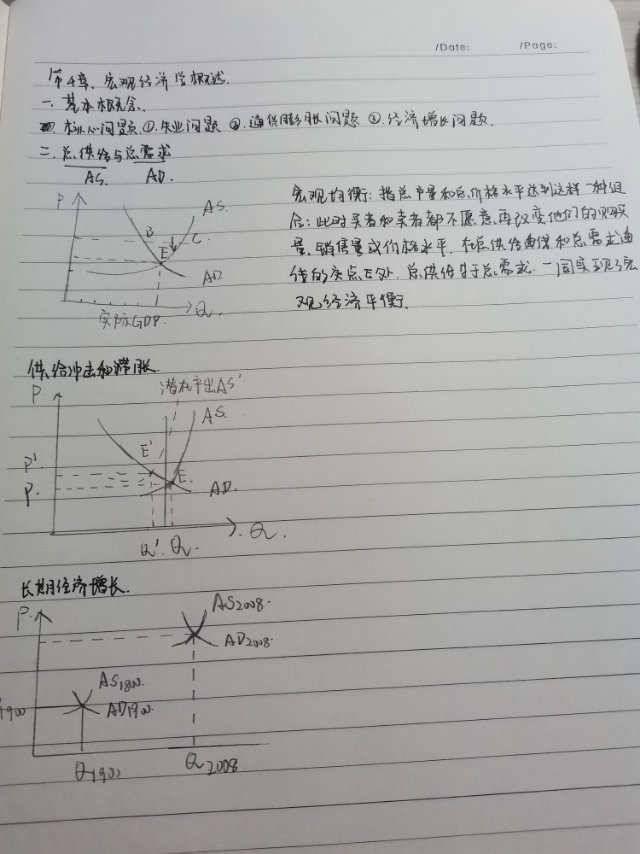 /Date: /Page:
第4章、宏观经济学概述.
一、基本概念.
核心问题.①.失业问题 ②.通货膨胀问题 ③.经济增长问题.
二、总供给与总需求
AS. AD.
P
AS.
B
C
E
AD.
Q.
实际GDP.
宏观均衡:指总产量和总价格水平达到这样一种组
合:此时买者和卖者都不愿意再改变他们的购买
量、销售量或价格水平.在总供给曲线和总需求曲
线的交点E处.总供给等于总需求.一同实现了宏
观经济平衡.
供给冲击和滞胀.
P.
潜在产出AS'
AS.
E'
P'
E.
P.
AD.
Q' Q.
Q.
长期经济增长.
P.
AS2008.
AD2008.
AS1800.
1900
AD1900.
Q1900
Q2008